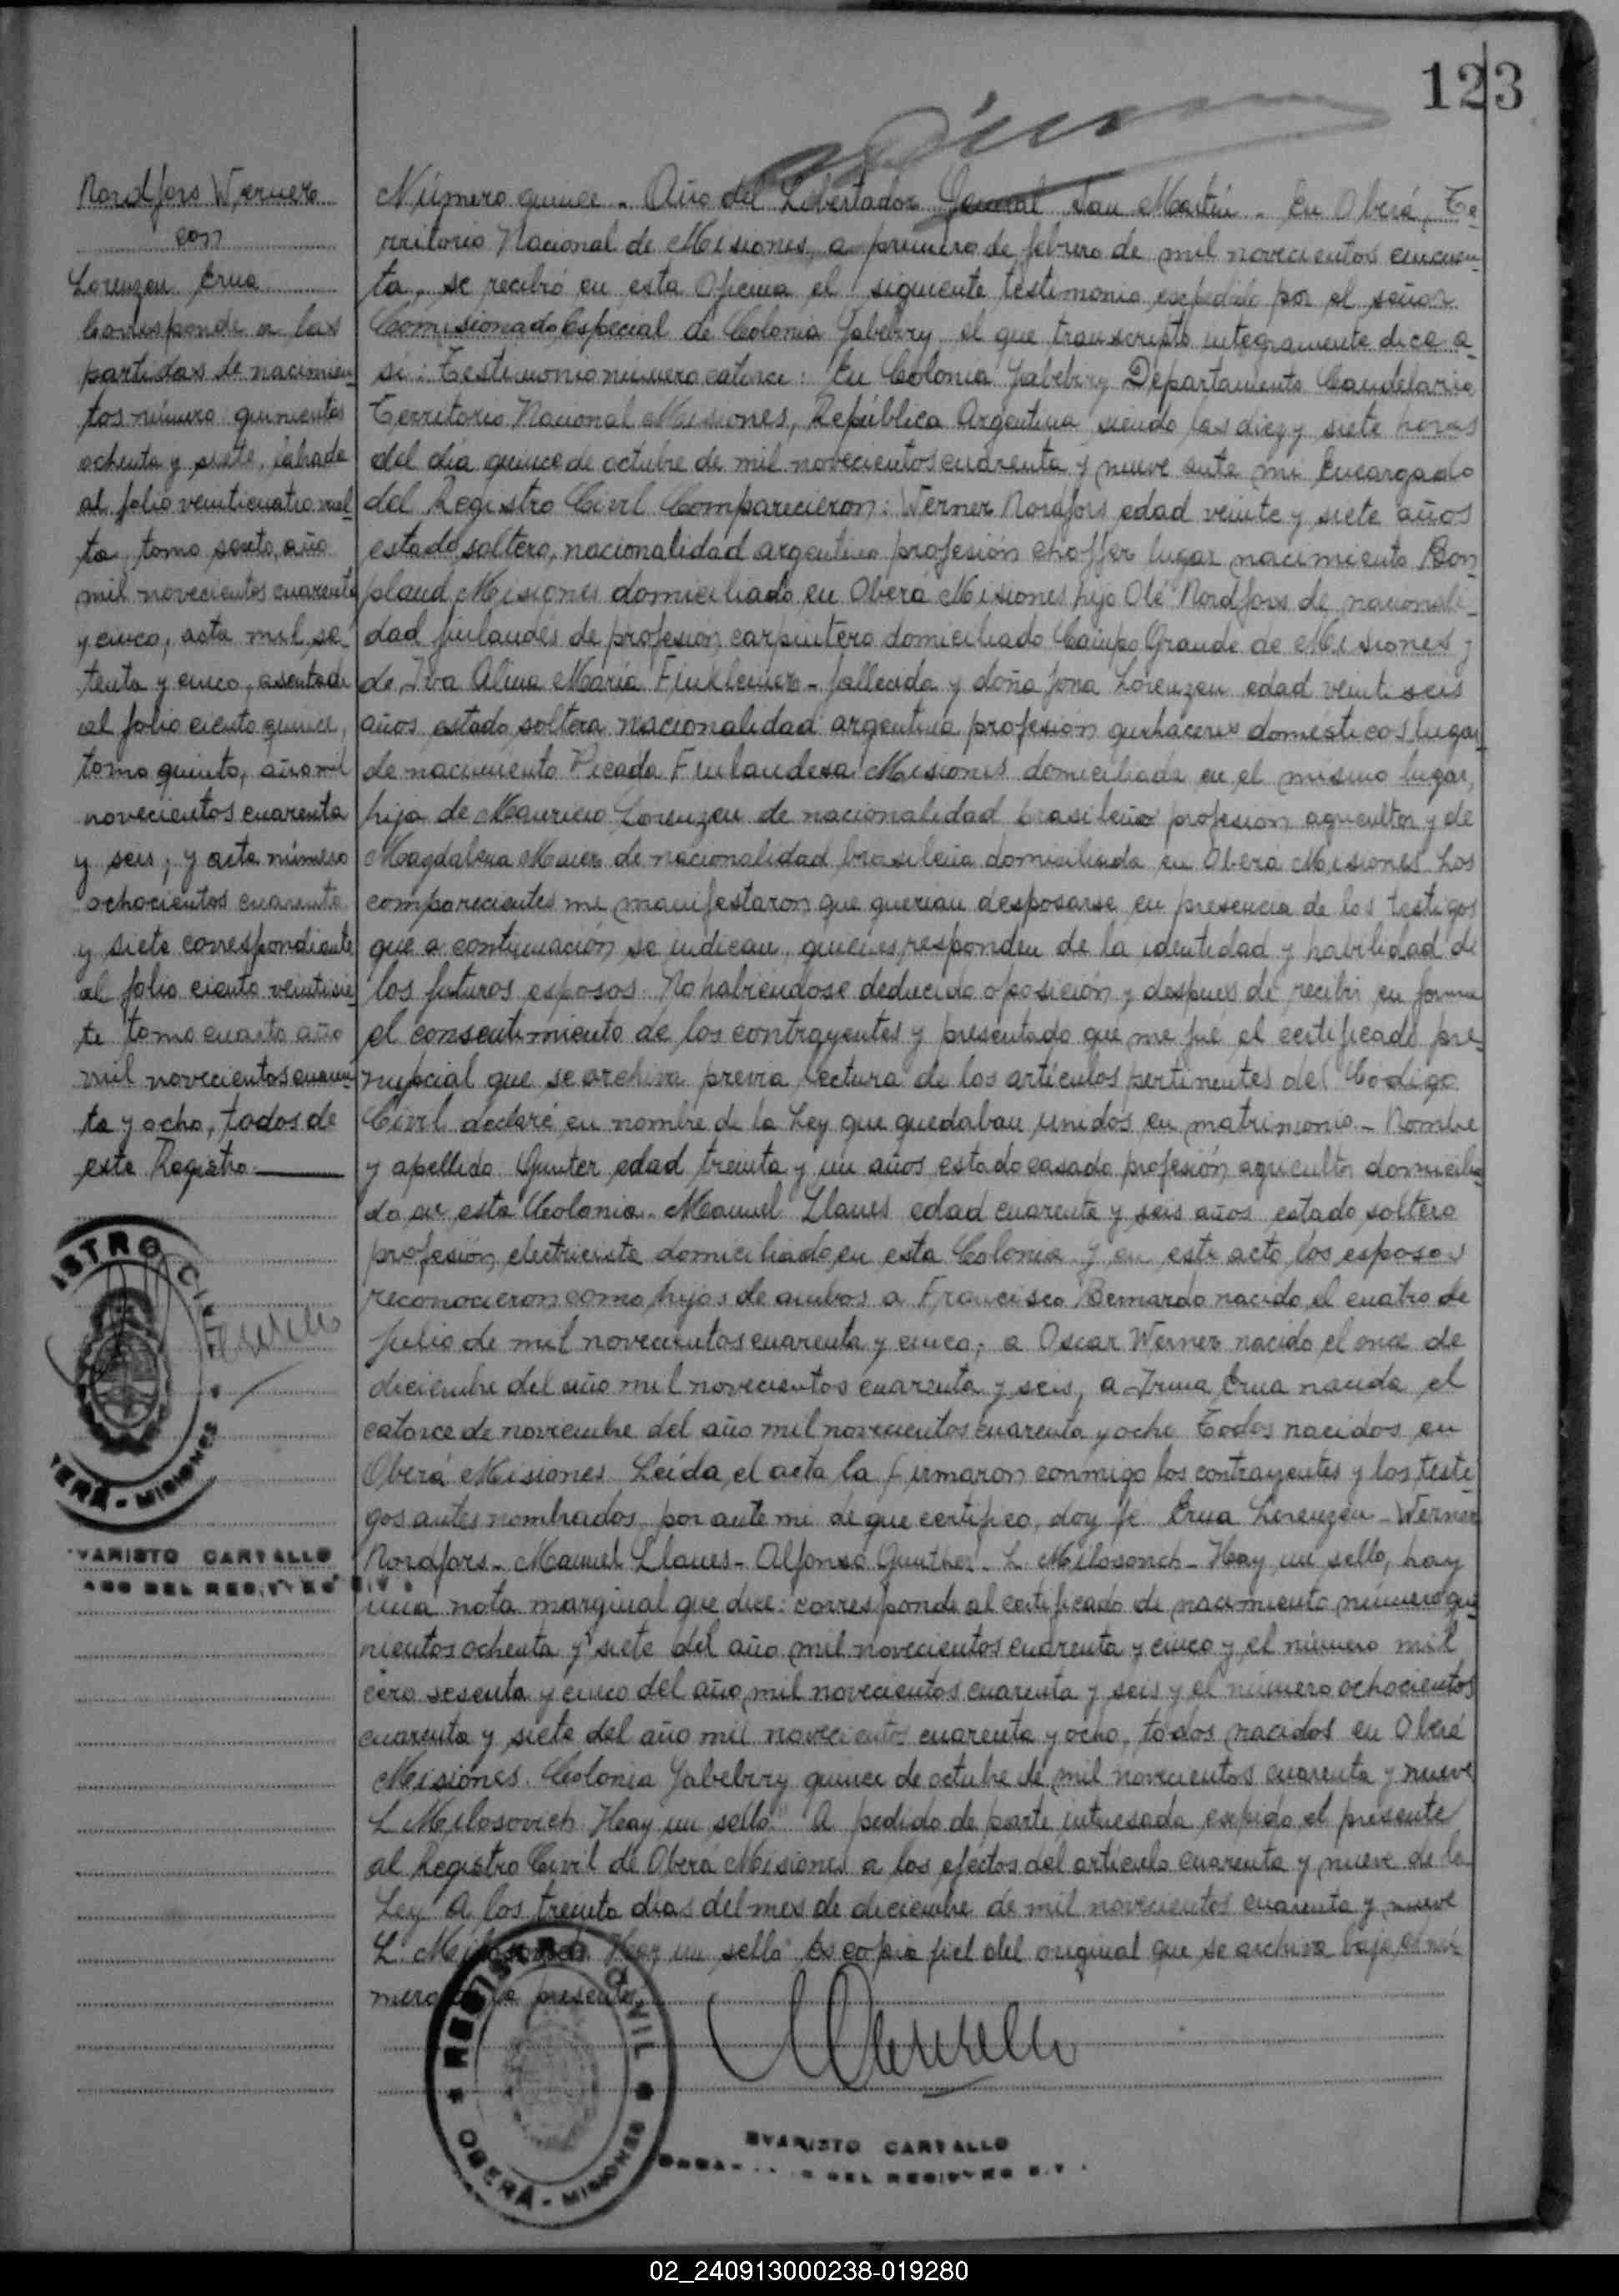 123
Nordfors Wernero
con
Lorenzen Erna
Corresponde a las
partidas de nacimien-
tos número quinientos
ochenta y siete, labrada
al folio veinticuatro vuel-
ta, tomo sexto, año
mil novecientos cuarenta
y cinco, acta mil se-
tenta y cinco, asentada
al folio ciento quince,
tomo quinto, año mil
novecientos cuarenta
y seis, y acta número
ochocientos cuarenta
y siete correspondiente
al folio ciento veintisie-
te tomo cuarto año
mil novecientos cuaren-
ta y ocho, todos de
este Registro
ISTRO CI
ERÁ - MISIONES
VARISTO CARVALLO
DEL REGISTRO
Número quince. Año del Libertador General San Martín. En Oberá, Te-
rritorio Nacional de Misiones, a primero de febrero de mil novecientos cincuen-
ta, se recibió en esta Oficina el siguiente testimonio expedido por el señor
Comisionado Especial de Colonia Yabebiry el que transcripto integramente dice a-
sí: Testimonio numero catorce: En Colonia Yabebiry Departamento Candelaria
Territorio Nacional Misiones, República Argentina siendo las diez y siete horas
del día quince de octubre de mil novecientos cuarenta y nueve ante mi Encargado
del Registro Civil Comparecieron: Werner Nordfors edad veinte y siete años
estado soltero, nacionalidad argentino profesión choffer lugar nacimiento Bon-
pland Misiones domiciliado en Oberá Misiones hijo Olé Nordfors de nacionali-
dad finlandés de profesión carpintero domiciliado Campo Grande de Misiones y
de Iva Alina María - fallecida y doña Lorenzen edad veintiseis
años estado soltera nacionalidad argentina profesión quehaceres domésticos lugar
de nacimiento Picada Finlandesa Misiones domiciliada en el mismo lugar,
hija de Mauricio Lorenzen de nacionalidad brasileño profesion agricultor y de
Magdalena Maier de nacionalidad brasileña domiciliada en Oberá Misiones Los
comparecientes me manifestaron que querian desposarse en presencia de los testigos
que a continuación se indican, quienes responden de la identidad y habilidad de
los futuros esposos. No habiendose deducido oposición y despues de recibir en forma
el consentimiento de los contrayentes y presentado que me fué el certificado pre-
nupcial que se archiva previa lectura de los artículos pertinentes del Codigo
Civil declaré en nombre de la Ley que quedaban unidos en matrimonio - Nombre
y apellido Gunter edad treinta y un años estado casado profesión agricultor domicilia-
do en esta Colonia. Manuel Llanes edad cuarenta y seis años estado soltero
profesión electricista domiciliado en esta Colonia y en este acto los esposos
reconocieron como hijos de ambos a Francisco Bernardo nacido el cuatro de
julio de mil novecientos cuarenta y cinco; a Oscar Werner nacido el once de
diciembre del año mil novecientos cuarenta y seis, a Irma Erna nacida el
catorce de noviembre del año mil novecientos cuarenta y ocho Todos nacidos en
Oberá Misiones Leída el acta la firmaron conmigo los contrayentes y los testi-
gos antes nombrados por ante mi de que certifico, doy fé Erna Lorenzen - Werner
Nordfors - Manuel Llanes - Alfonso Gunther - L. Milosovich - Hay un sello, hay
una nota marginal que dice: corresponde al certificado de nacimiento número qui-
nientos ochenta y siete del año mil novecientos cuarenta y cinco y el número mil
cero sesenta y cinco del año mil novecientos cuarenta y seis y el número ochocientos
cuarenta y siete del año mil novecientos cuarenta y ocho, todos nacidos en Oberá
Misiones. Colonia Yabebiry quince de octubre de mil novecientos cuarenta y nueve
L Milosovich Hay un sello. A pedido de parte interesada expido el presente
al Registro Civil de Oberá Misiones a los efectos del artículo cuarenta y nueve de la
Ley A los treinta días del mes de diciembre de mil novecientos cuarenta y nueve
L. Milosovich Hay un sello Es copia fiel del original que se archiva bajo el nú-
mero presente
REGISTRO CIVIL
OBERÁ - MISIONES
EVARISTO CARVALLO
DEL REGISTRO
02_240913000238-019280